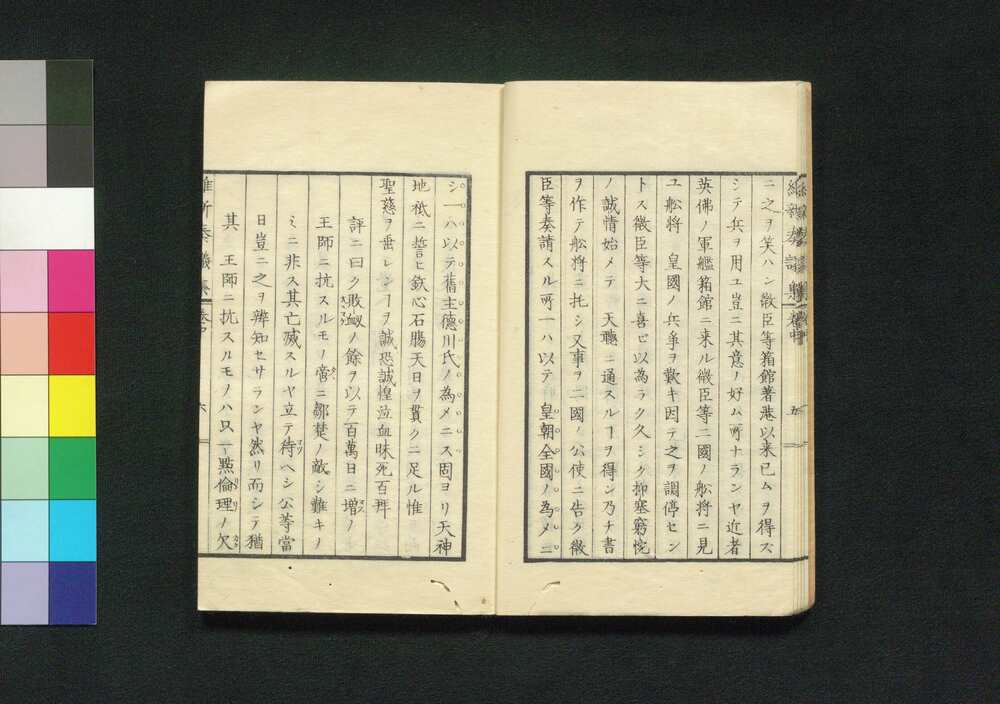 ニ之ヲ笑ハン微臣等箱館著港以来已ムヲ得ス
シテ兵ヲ用ユ豈ニ其意ノ好ム所ナランヤ近者
英佛ノ軍艦箱館ニ来ル微臣等二國ノ舩將ニ見
ユ舩將 皇國ノ兵爭ヲ歎キ因テ之ヲ調停セン
トス微臣等大ニ喜ビ以為ラク久シク抑塞窮
ノ誠情始メテ 天聽ニ通スルヿヲ得ン乃チ書
ヲ作テ舩將ニ托シ又事ヲ二國ノ公使ニ告ク微
臣等奏請スル所一ハ以テ 皇朝全國ノ為メニ
五
シ一ハ以テ舊主德川氏ノ為メニス固ヨリ天神
地祇ニ誓ヒ鉄心石膓天日ヲ貫クニ足ル惟
聖慈ヲ垂レンヿヲ誠恐誠惶泣血昧死百拜
評ニ曰ク敗衂ノ餘ヲ以テ百萬日ニ增ノ
王師ニ抗スルモノ啻ニ鄒楚ノ敵シ難キノ
ミニ非ス其亡滅スルヤ立テ待ヘシ公等當
日豈ニ之ヲ辨知セサランヤ然リ而シテ猶
其 王師ニ抗スルモノハ只一點倫理ノ欠
維新奏議集 卷中
六